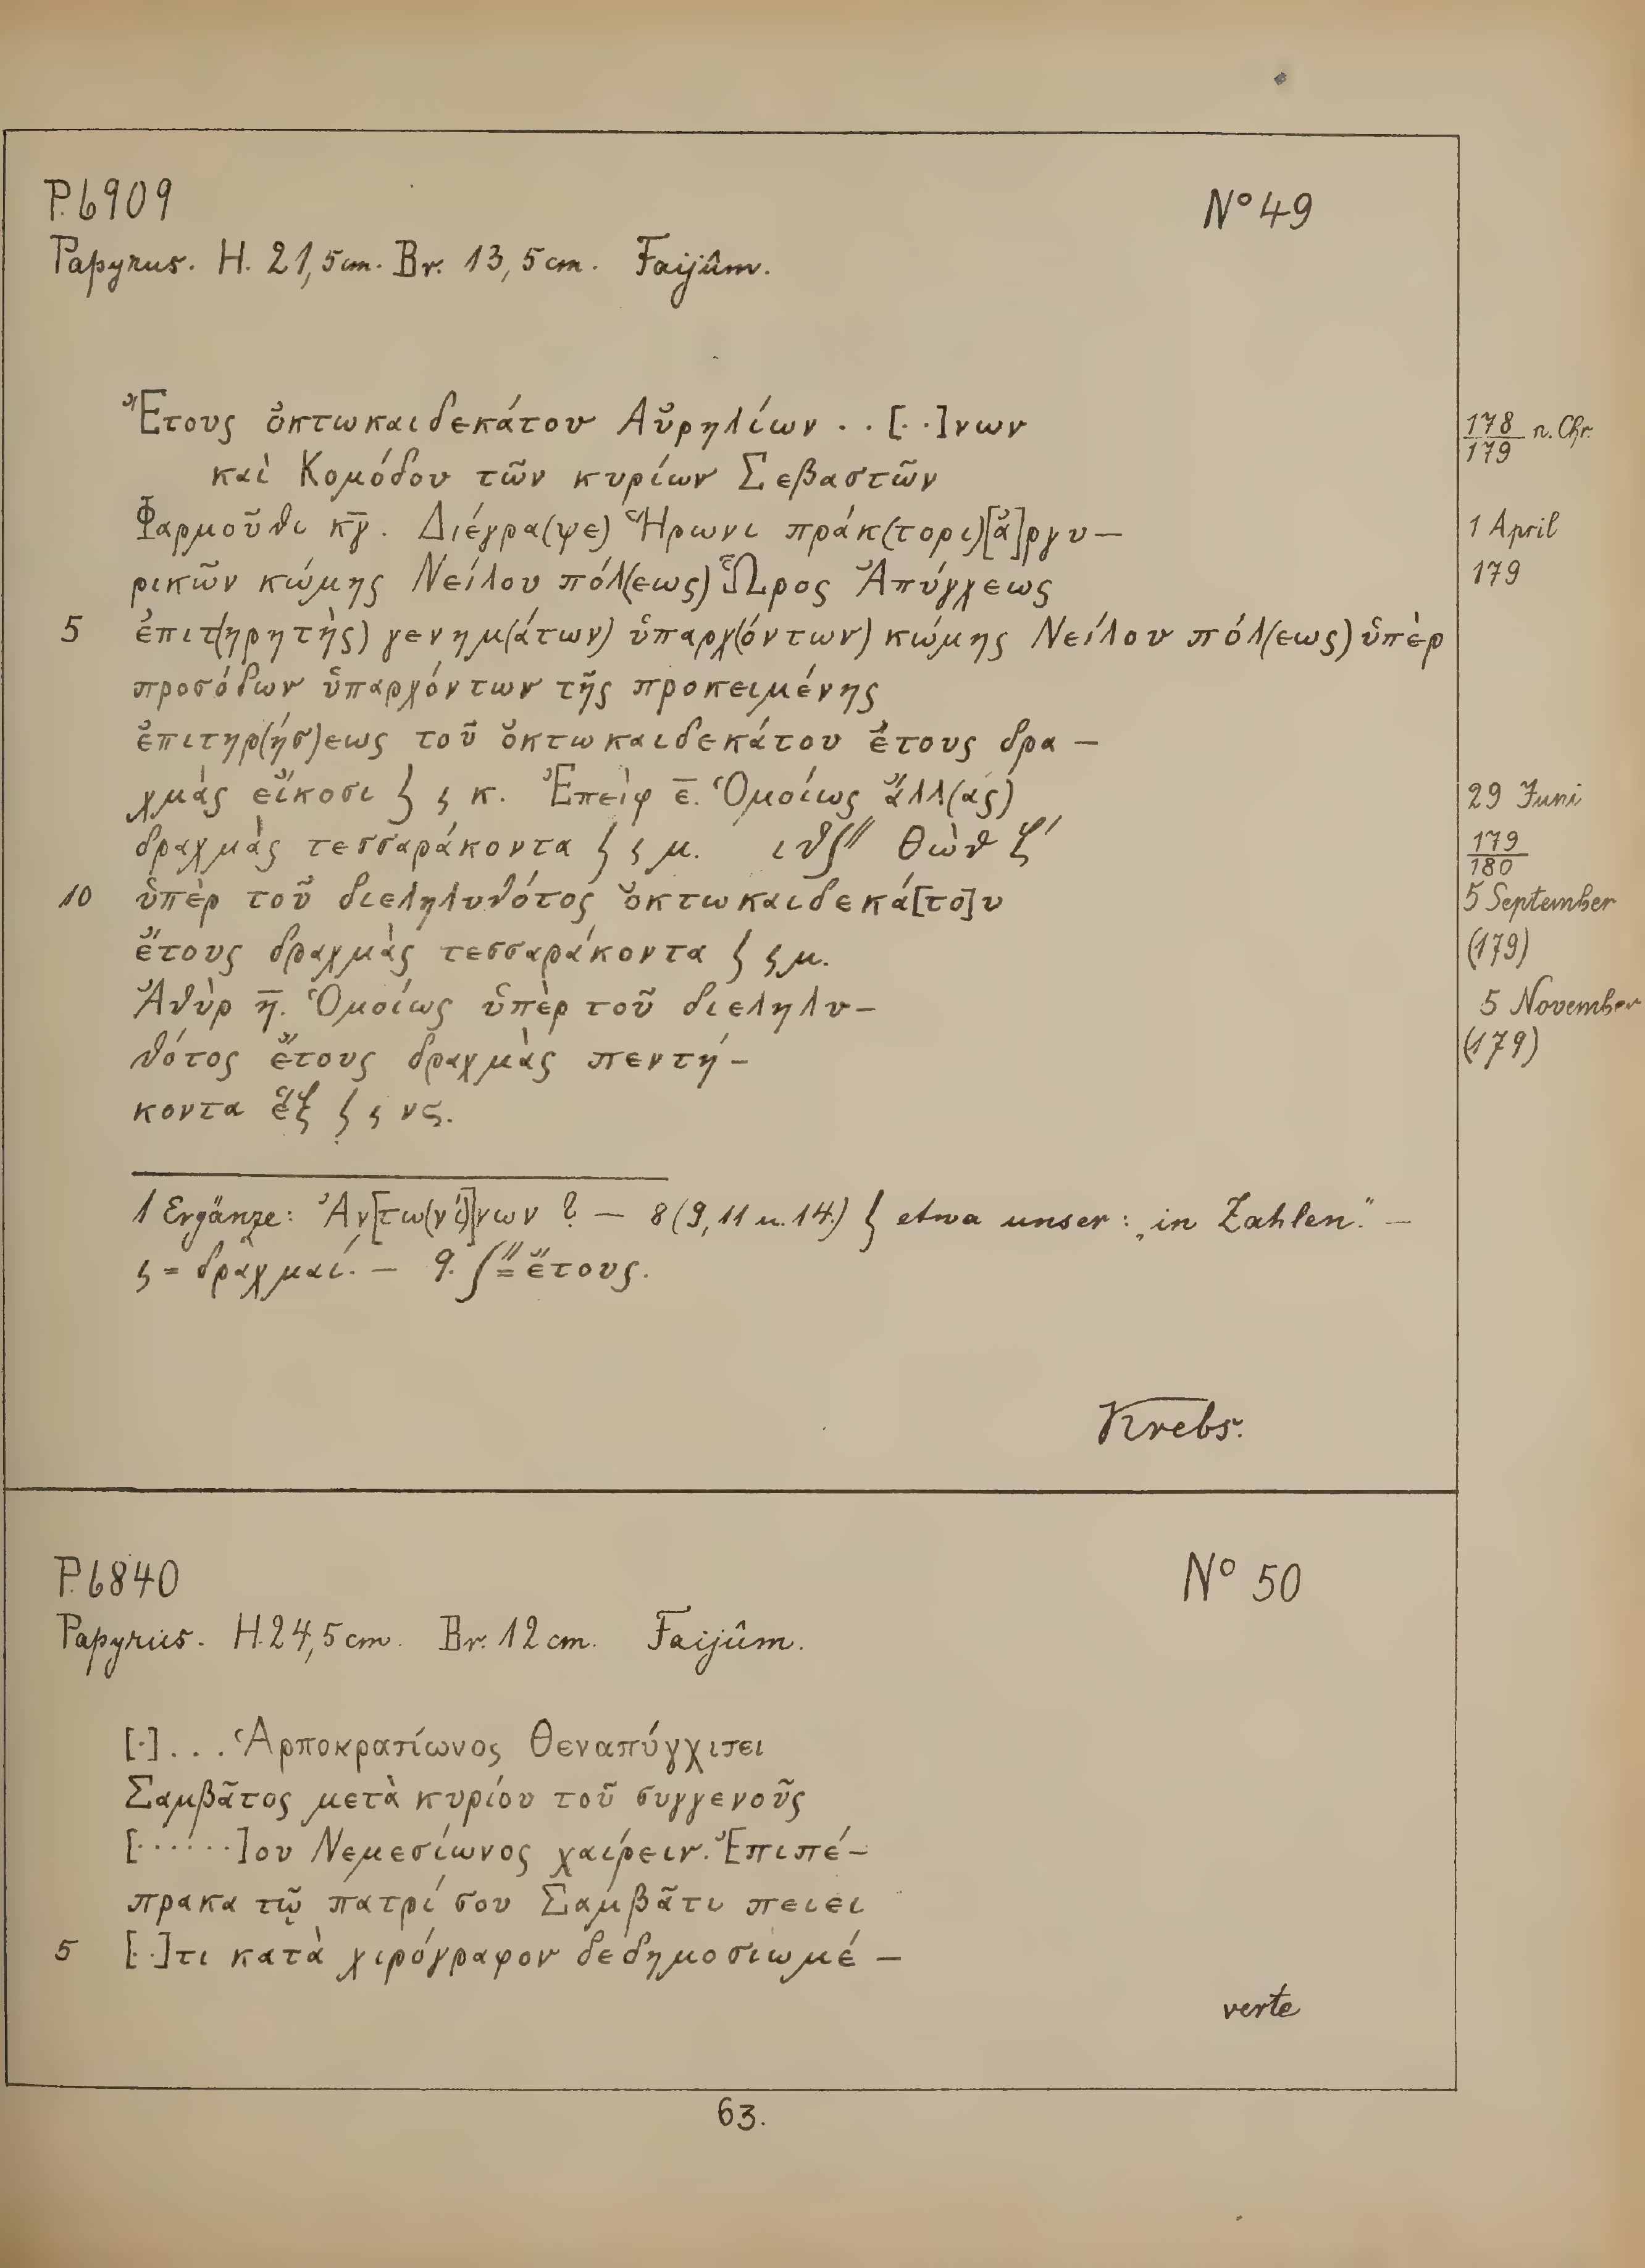 P. 6909
N° 49
Papyrus. H. 21,5 cm. Br. 13,5 cm. Faijûm.
Ἔτους ὀκτωκαιδεκάτου Αὐρηλίων . . [. .]νων
178/179 n. Chr.
καὶ Κομόδου τῶν κυρίων Σεβαστῶν
Φαρμοῦθι κ̅γ̅. Διέγρα(ψε) Ἥρωνι πράκ(τορι) [ἀ]ργυ—
1 April
ρικῶν κώμης Νείλου πόλ(εως) Ὧρος Ἀπύγχεως
179
5 ἐπιτ(ηρητὴς) γενημ(άτων) ὑπαρχ(όντων) κώμης Νείλου πόλ(εως) ὑπὲρ
προσόδων ὑπαρχόντων τῆς προκειμένης
ἐπιτηρ(ήσ)εως τοῦ ὀκτωκαιδεκάτου ἔτους δρα —
χμὰς εἴκοσι } ϛ κ. Ἐπεὶφ ε̅. Ὁμοίως ἄλλ(ας)
29 Juni
δραχμὰς τεσσαράκοντα } ϛ μ. ιθ∫″ Θὼθ ζ′
179/180
10 ὑπὲρ τοῦ διεληλυθότος ὀκτωκαιδεκά[το]υ
5 September
ἔτους δραχμὰς τεσσαράκοντα } ϛ μ.
(179)
Ἀθὺρ η̅. Ὁμοίως ὑπὲρ τοῦ διεληλυ—
5 November
θότος ἔτους δραχμὰς πεντή—
(179)
κοντα ἕξ } ϛ νϛ.
1 Ergänze: Ἀν[τω(νί)]νων ? — 8 (9, 11 u. 14.) } etwa unser: „in Zahlen." —
ϛ = δραχμαί. — 9. ∫″ = ἔτους.
Krebs.
P. 6840
N° 50
Papyrus. H. 24,5 cm. Br. 12 cm. Faijûm.
[.] . . . Ἁρποκρατίωνος Θεναπύγχιτει
Σαμβᾶτος μετὰ κυρίου τοῦ συγγενοῦς
[......]ου Νεμεσίωνος χαίρειν. Ἐπιπέ—
πρακα τῷ πατρί σου Σαμβᾶτι πειει
5 [. .]τι κατὰ χιρόγραφον δεδημοσιωμέ —
verte
63.